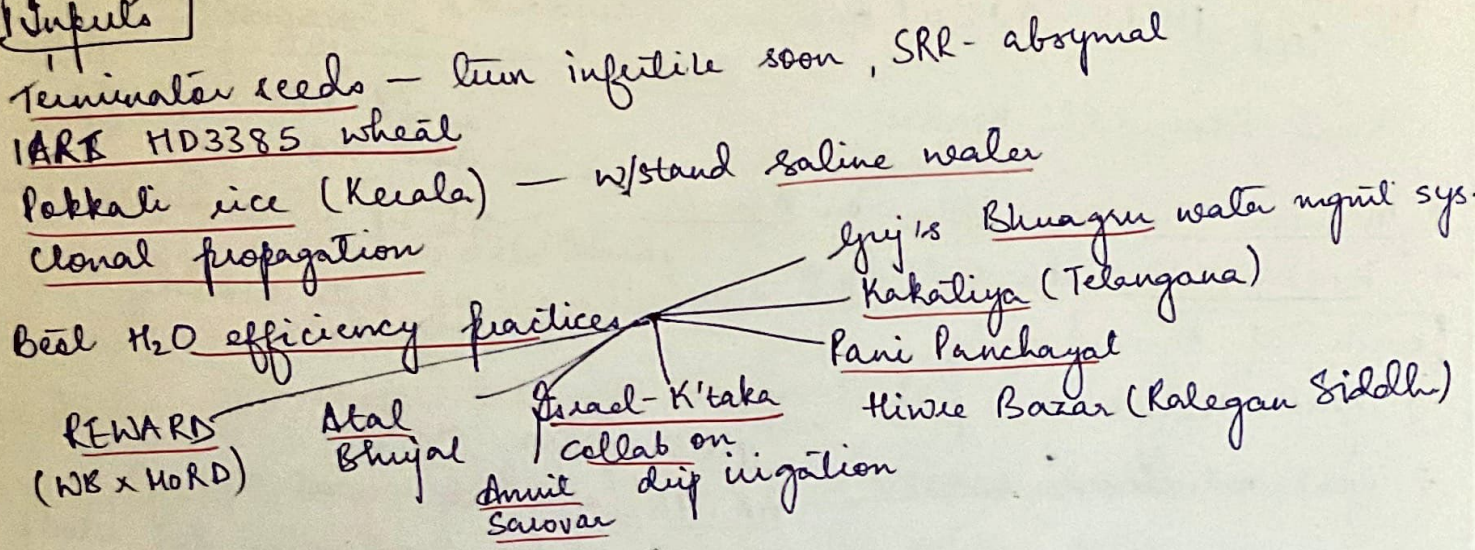 Inputs
Terminator seeds — turn infertile soon, SRR - absymal
IARI HD3385 wheat
Pokkali rice (Kerala) — w/stand saline water
Clonal propagation
Best H₂O efficiency practices
Guj's Bhungru water mgmt sys.
Kakatiya (Telangana)
Pani Panchayat
Hiwre Bazar (Ralegan Siddhi)
REWARD
(WB x MoRD)
Atal
Bhujal
Israel-K'taka
collab on
drip irrigation
Amrit
Sarovar